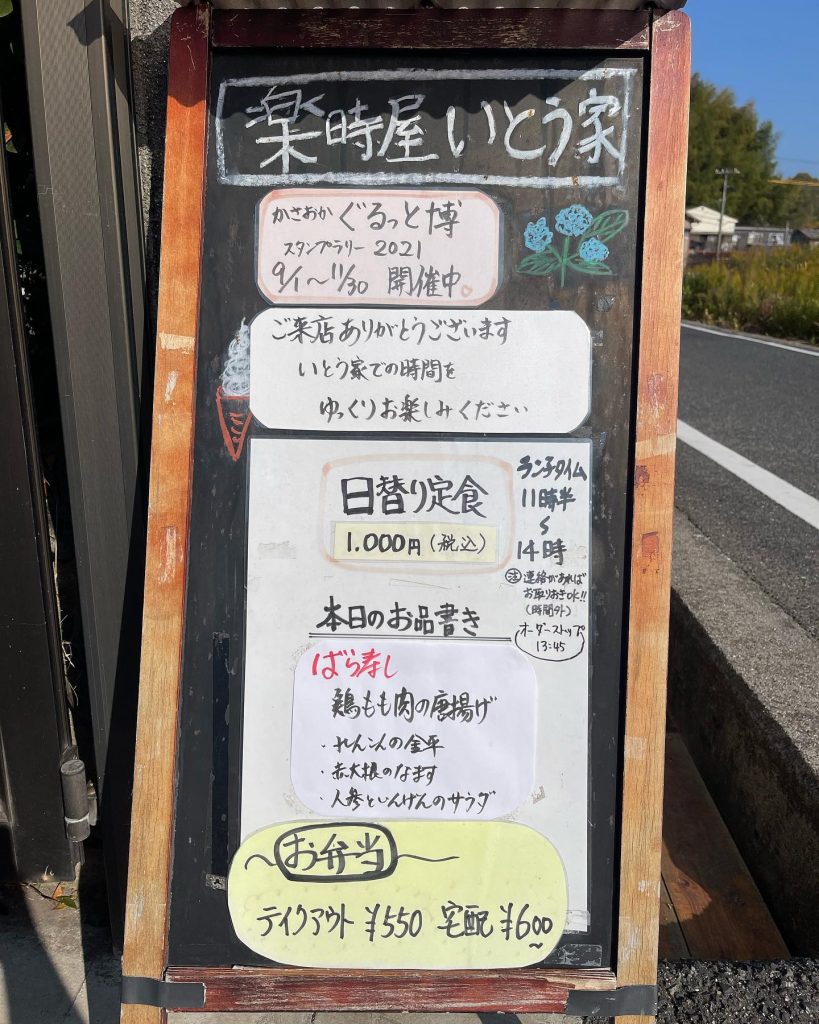 楽時屋 いとう家
かさおか ぐるっと博
スタンプラリー 2021
9/1〜11/30 開催中。
ご来店ありがとうございます
いとう家での時間を
ゆっくりお楽しみください
日替り定食
1.000円(税込)
ランチタイム
11時半
〜
14時
注 連絡があれば
お取りおきOK!!
(時間外)
オーダーストップ
13:45
本日のお品書き
ばら寿し
鶏もも肉の唐揚げ
・れんこんの金平
・赤大根のなます
・人参といんげんのサラダ
〜お弁当〜
テイクアウト ¥550 宅配 ¥600〜